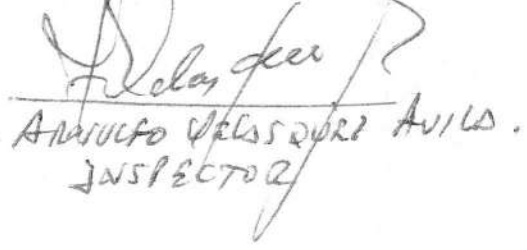 ARNULFO VELASQUEZ AVILA.
INSPECTOR